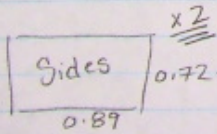 x 2
Sides
0.72
0.89